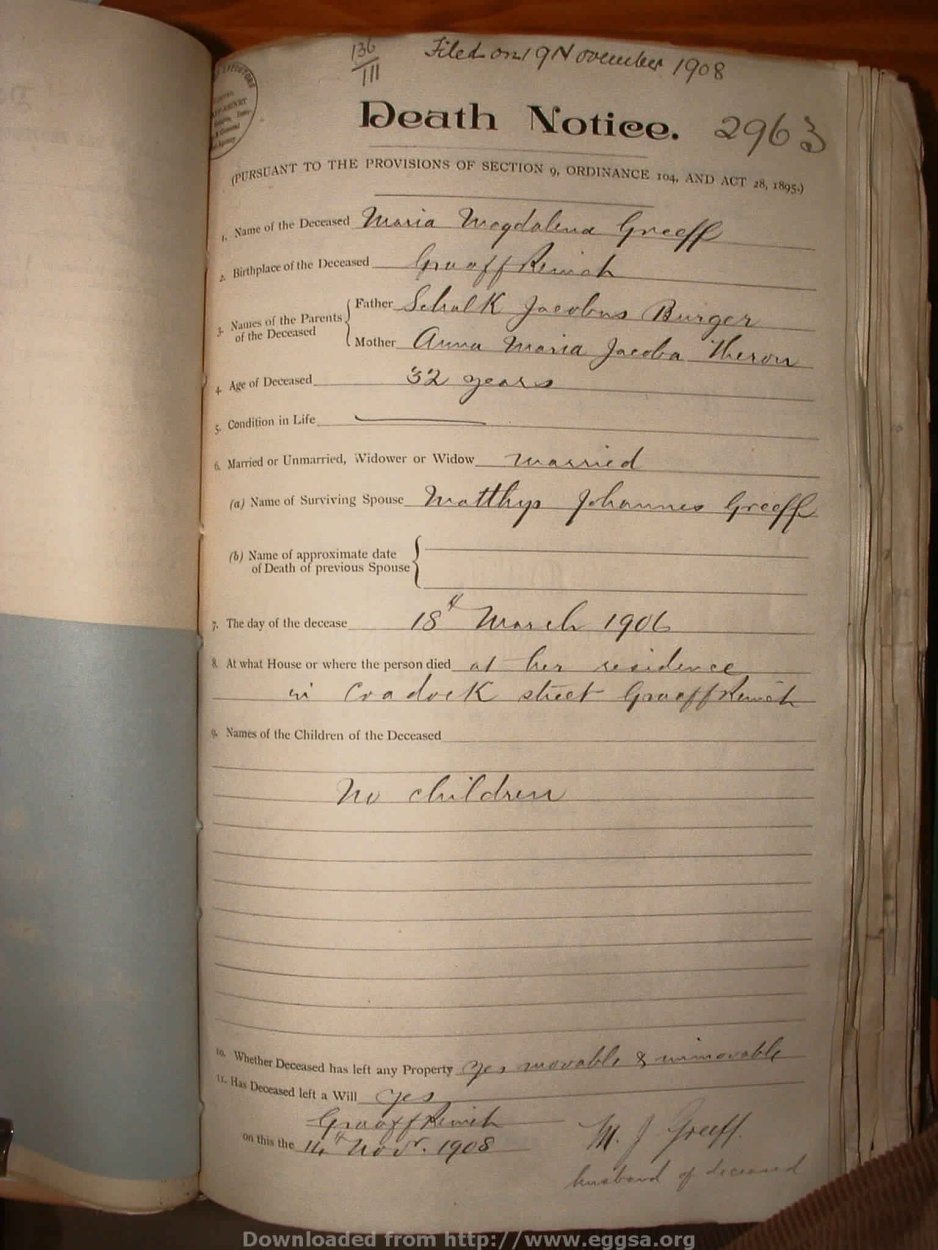 136
111
Filed on 19 November 1908
Death Notice. 2963
(PURSUANT TO THE PROVISIONS OF SECTION 9, ORDINANCE 104, AND ACT 28, 1895.)
1. Name of the Deceased Maria Magdalena Greeff
2. Birthplace of the Deceased Graaff Reinet
3. Names of the Parents of the Deceased { Father Schalk Jacobus Burger
Mother Anna Maria Jacoba Theron
4. Age of Deceased 32 years
5. Condition in Life
6. Married or Unmarried, Widower or Widow married
(a) Name of Surviving Spouse Matthys Johannes Greeff
(b) Name of approximate date
of Death of previous Spouse {
7. The day of the decease 18th March 1906
8. At what House or where the person died at her residence
in Cradock street Graaff Reinet
9. Names of the Children of the Deceased
No children
10. Whether Deceased has left any Property Yes movable & immovable
11. Has Deceased left a Will Yes
Graaff Reinet
on this the 14th Novr. 1908 M. J. Greeff.
husband of deceased
Downloaded from http://www.eggsa.org